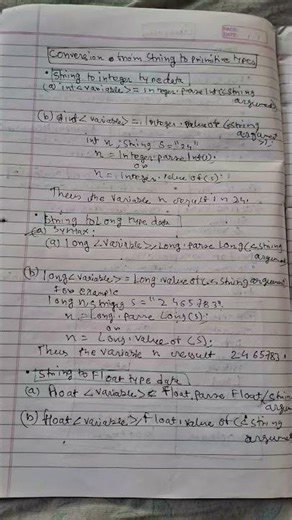 Conversion from String to primitive types
• String to integer type data
(a) int<variable> = Integer.parse Int(<string
argument
(b) int<variable> = Integer.value of(<string
argument
>);
int n; String s="24"
n = Integer.parse Int(s).
or
n = Integer.value of(s);
Thus the variable n result in 24.
• String to Long type data
(a) Syntax;
(a) long <variable> Long.parse Long(<string
argument
(b) long<variable> = Long value of(<string argument
For example
long n; string s= "246578?"
n = Long.parse Long(s).
or
n = Long.value of (S);
Thus the variable n result 246578?.
• String to Float type data
(a) float <variable> float.parse Float(string
argume
(b) float <variable> float.value of (<string
argume